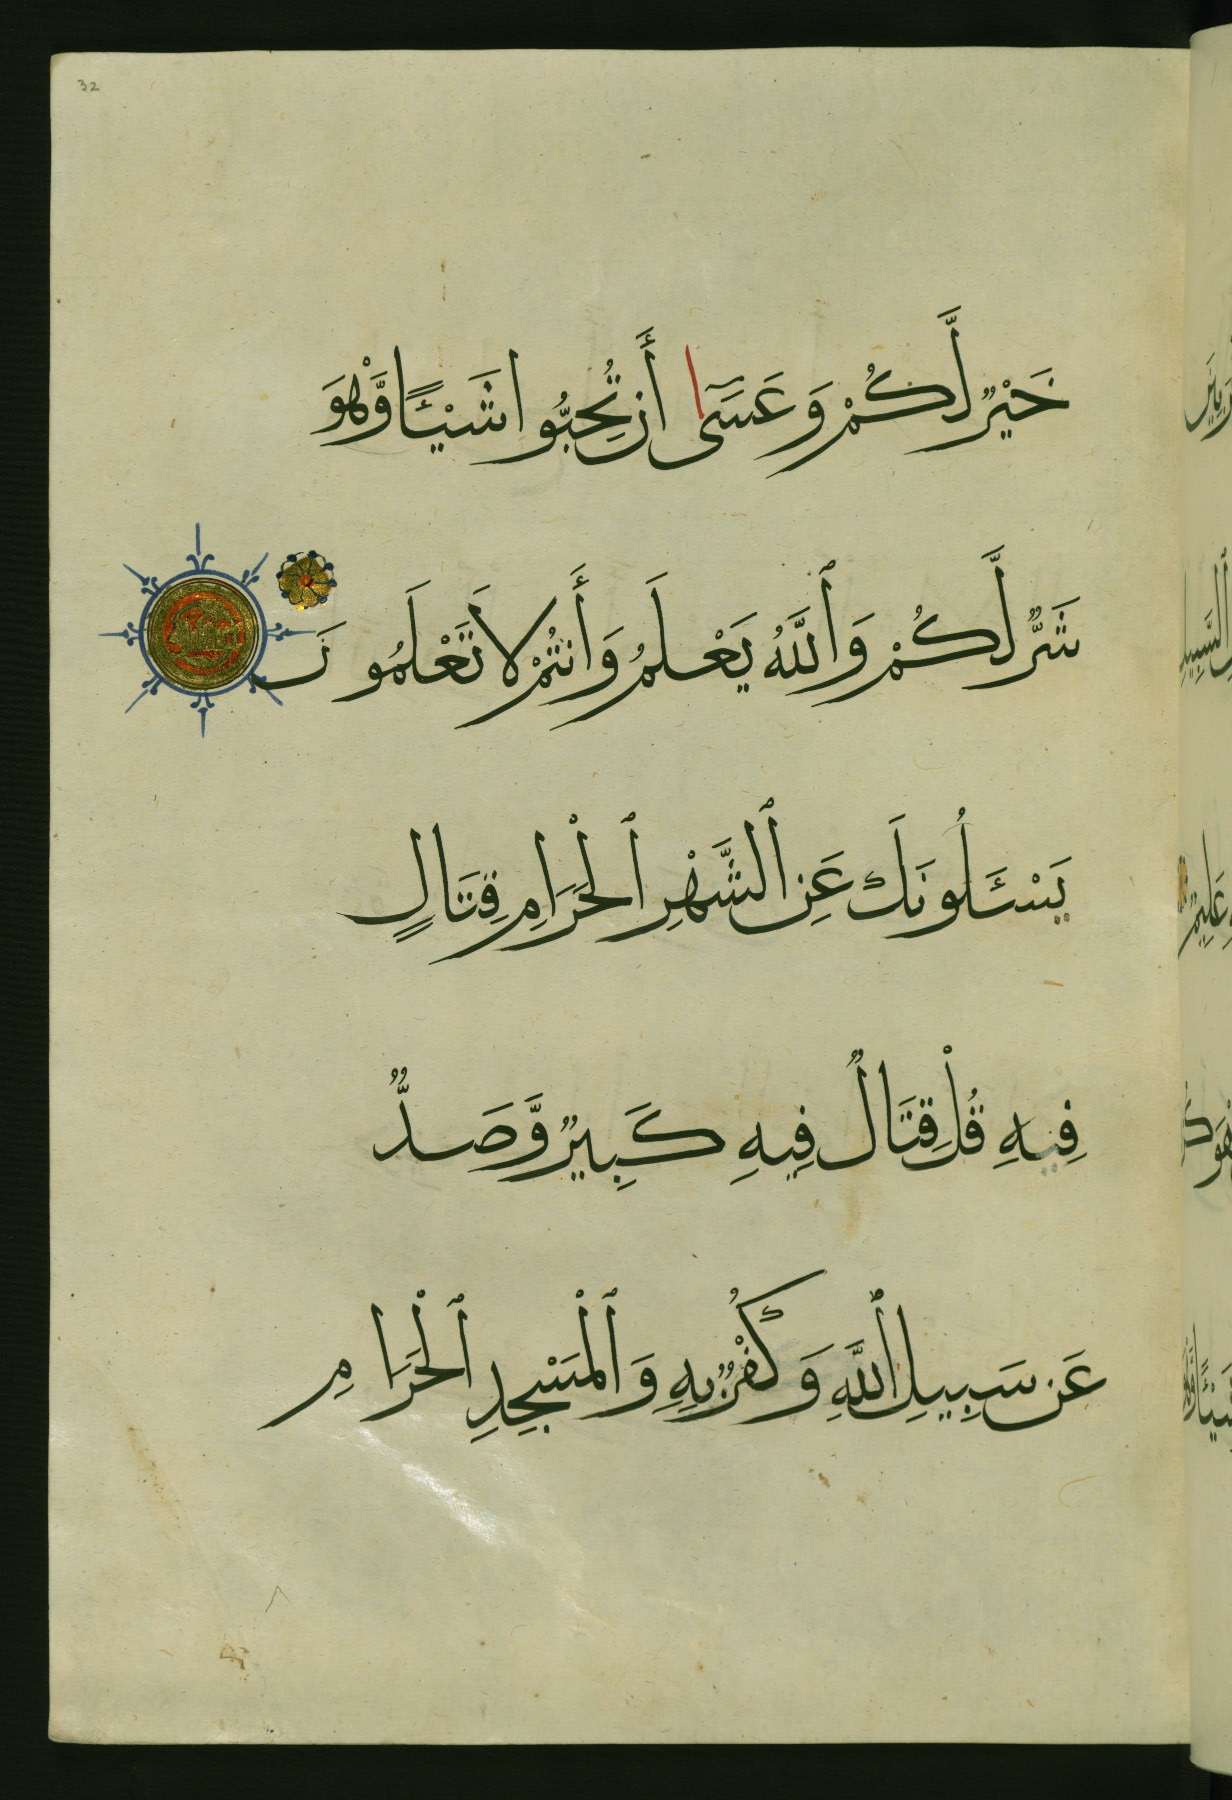 32
خَيْرٌ لَّكُمْ وَعَسَىٰٓ أَن تُحِبُّوا شَيْـًٔا وَّهْوَ
شَرٌّ لَّكُمْ وَٱللَّهُ يَعْلَمُ وَأَنتُمْ لَا تَعْلَمُونَ
يَسْـَٔلُونَكَ عَنِ ٱلشَّهْرِ ٱلْحَرَامِ قِتَالٍ
فِيهِ قُلْ قِتَالٌ فِيهِ كَبِيرٌ وَّصَدٌّ
عَن سَبِيلِ ٱللَّهِ وَكُفْرٌ بِهِ وَٱلْمَسْجِدِ ٱلْحَرَامِ